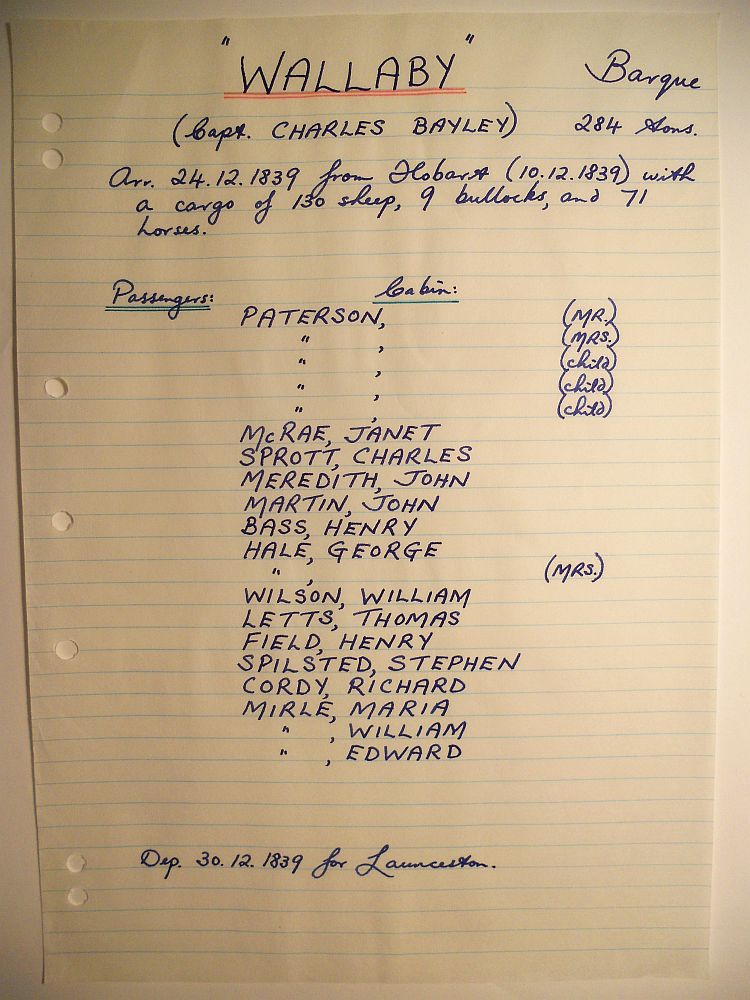 "WALLABY" Barque
(Capt. CHARLES BAYLEY) 284 tons.
Arr. 24.12.1839 from Hobart (10.12.1839) with
a cargo of 130 sheep, 9 bullocks, and 71
horses.
Passengers: Cabin:
PATERSON, (MR.)
" , (MRS.)
" , (child)
" , (child)
" , (child)
McRAE, JANET
SPROTT, CHARLES
MEREDITH, JOHN
MARTIN, JOHN
BASS, HENRY
HALE, GEORGE
" , (MRS.)
WILSON, WILLIAM
LETTS, THOMAS
FIELD, HENRY
SPILSTED, STEPHEN
CORDY, RICHARD
MIRLE, MARIA
" , WILLIAM
" , EDWARD
Dep. 30.12.1839 for Launceston.